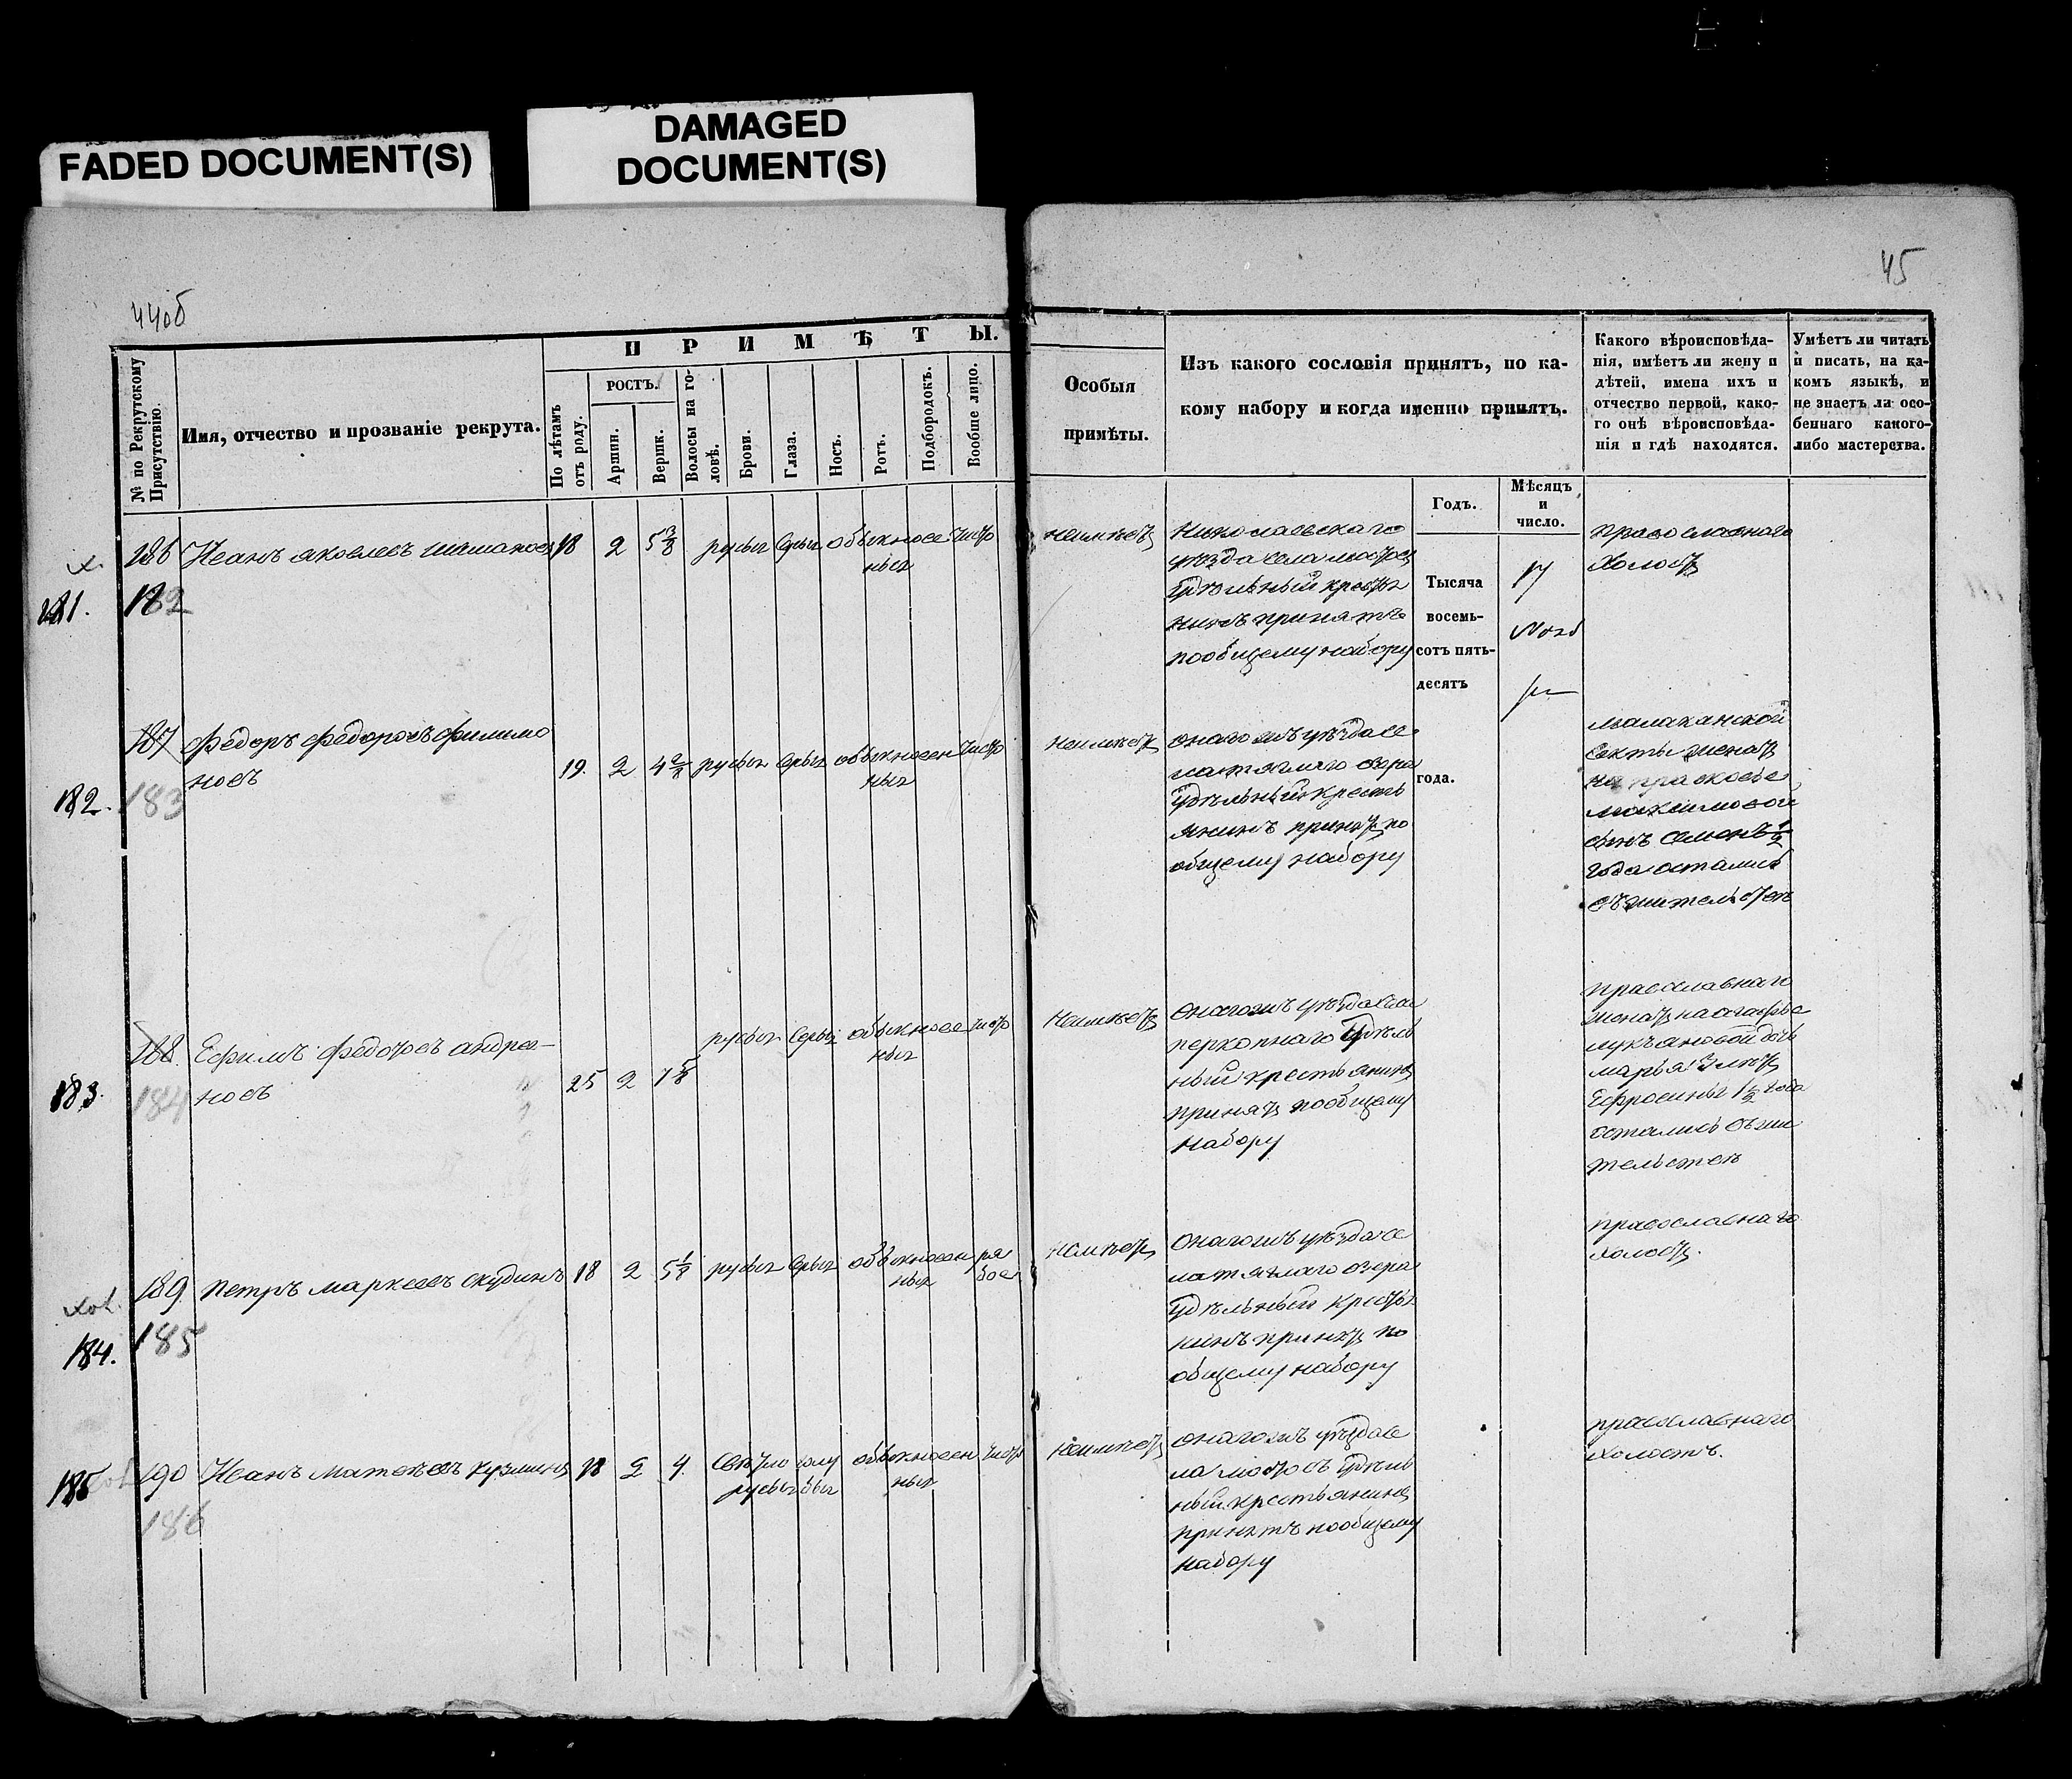 FADED DOCUMENT(S)
DAMAGED
DOCUMENT(S)
44об
45
№ по Рекрутскому Присутствію.
Имя, отчество и прозваніе рекрута.
ПРИМѢТЫ.
По лѣтамъ отъ роду.
РОСТЪ.
Аршин.
Вершк.
Волосы на головѣ.
Брови.
Глаза.
Носъ.
Ротъ.
Подбородокъ.
Вообще лицо.
Особыя
примѣты.
Изъ какого сословія принятъ, по ка-
кому набору и когда именно принятъ.
Годъ.
Мѣсяцъ
и
число.
Какого вѣроисповѣда-
нія, имѣетъ ли жену и
дѣтей, имена ихъ и
отчество первой, како-
го онѣ вѣроисповѣда-
нія и гдѣ находятся.
Умѣетъ ли читать
и писать, на ка-
комъ языкѣ, и
не знаетъ ли осо-
беннаго какого-
либо мастерства.
Тысяча
восемь-
сотъ пять-
десятъ
года.
181.
186
182
Иванъ яковлевъ шишановъ 18 2 5 3/8 русы серы обыкновен
ны
чисто
неимѣетъ
Николаевскаго
уѣзда села
удѣльный кресть
нинъ принятъ
пообщему набору
17
православнаго
Холостъ
182.
187
183
Федоръ Федоровъ филимо
новъ
19. 2 4 2/8 русы серы обыкновен
ны
чисто
неимѣетъ
онагожъ уѣзда се
ла тяглаго озера
удѣльный кресть
янинъ принятъ по
общему набору
малаканской
секты женатъ
на прасковье
максимовой
сынъ семенъ 1/2
года остались
въ жительствѣ
183.
188.
184
Ефимъ Федоровъ андрея-
новъ
25 2 7 5/8 русы серы обыкновен
ны
чисто
неимѣетъ
онагожъ уѣзда села
перкопнаго удѣль
ный крестьянинъ
принятъ пообщему
набору
православнаго
женатъ на агафье
лукьяновой дочь
марья 3 летъ
Ефросинья 1 1/2 года
остались въ жи
тельстве
184.
189.
185
Петръ маркеевъ скудинъ 18 2 5 1/8 русы серы обыкновен
ны
ря
бое
неимѣетъ
онагожъ уѣзда се
ла тяглаго озера
удѣльный кресть
нинъ принятъ по
общему набору
православнаго
холостъ.
185
190
186
Иванъ матвѣевъ кузминъ 18 2 4. Свѣтло
русы
голу
бы
обыкновен
ны
чисто
неимѣетъ
онагожъ уѣзда се
ла удѣль
ный крестьянинъ
принятъ пообщему
набору
православнаго
холостъ.